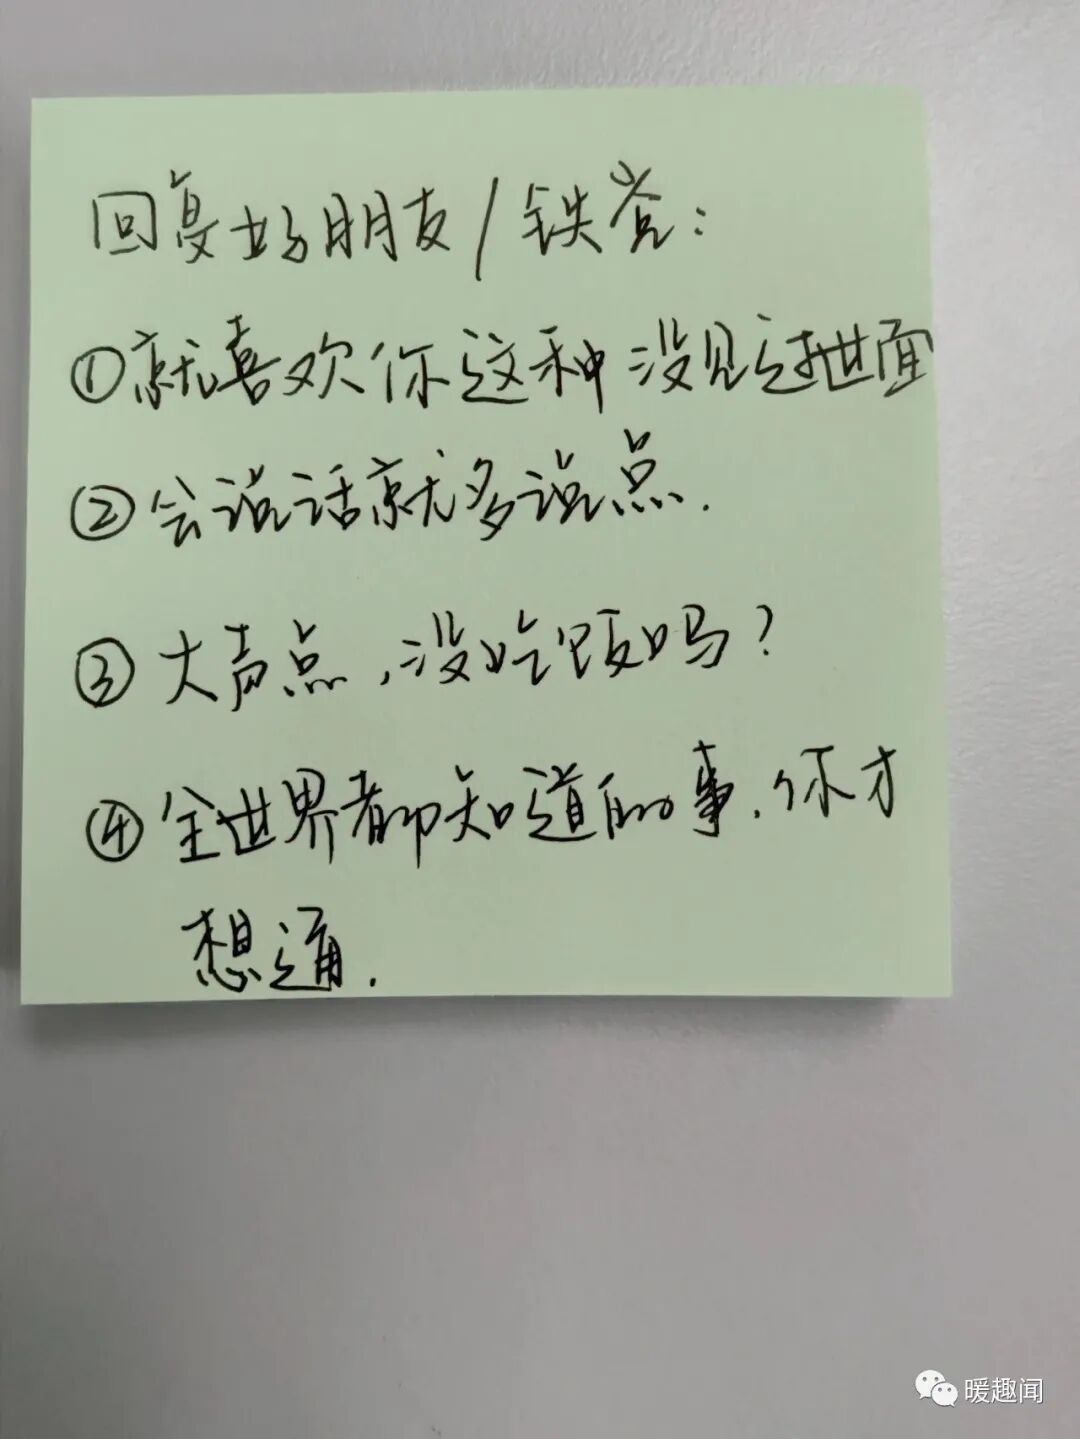 回复好朋友/铁瓷：
①就喜欢你这种没见过世面
②会说话就多说点.
③大声点,没吃饭吗?
④全世界都知道的事.你才
想通.
暖趣闻